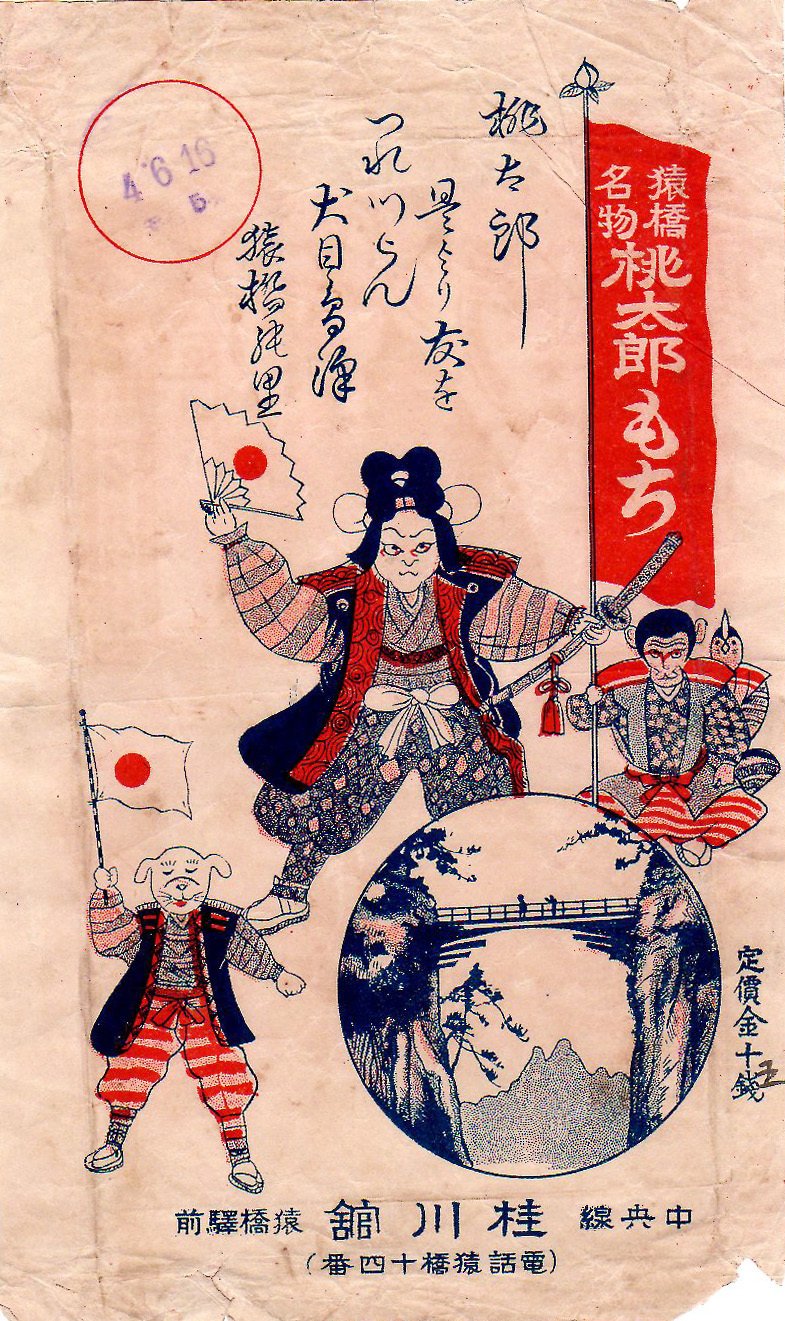 猿橋
名物
桃太郎もち
桃太郎
是より友を
つれつらん
犬目鳥澤
猿橋の里
4.6.16
5
定價金十錢
五
中央線 桂川舘 猿橋驛前
(電話猿橋十四番)